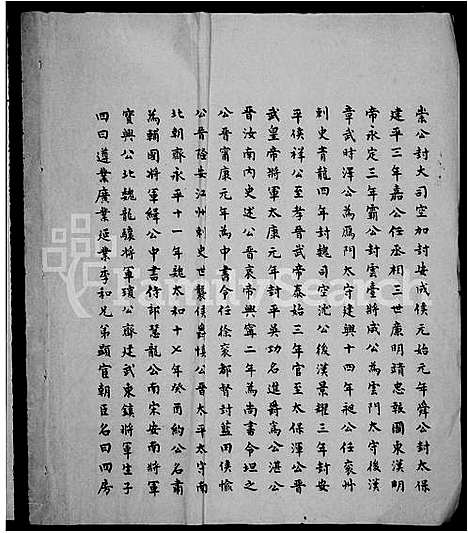 崇公封大司空加封安成侯元始元年舜公封太保
建平三年嘉公任丞相三世廉明靖忠報國東漢明
帝永定三年霸公封雲臺將成公為雲門太守後漢
章武時澤公為雁門太守建興十四年昶公任兗州
刺史青龍四年封魏司空沈公後漢景耀三年封安
平侯祥公至孝晉武帝泰始三年官至太保渾公晉
武皇帝將軍太康元年封平吳功名進爵為公湛公
晉汝南內史述公晉哀帝興寧二年為尚書令坦之
公晉甯康元年為中書令任徐兗都督封藍田侯愉
公晉隆安江州刺史世襲侯爵慎公晉太平太守南
北朝齊永平十一年魏太和十七年癸酉約公名肅
為輔國將軍緯公中書侍郎慧龍公南宋安南將軍
寶興公北魏龍驤將軍瓊公齊建武東鎮將軍生子
四曰遵業廣業延業季和兄弟顯宦朝臣名曰四房
FamilySearch